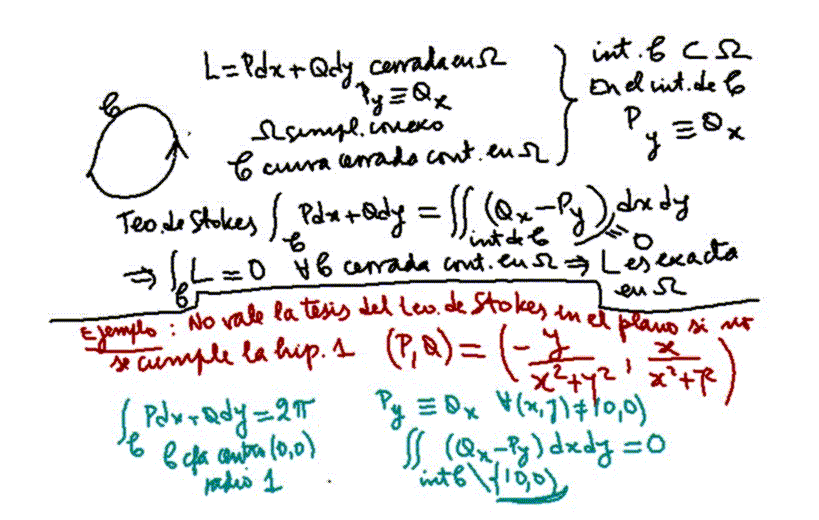 L = Pdx + Qdy cerrada en Ω
P_y ≡ Q_x
Ω simpl. conexo
𝒞 curva cerrada cont. en Ω
int. 𝒞 ⊂ Ω
En el int. de 𝒞
P_y ≡ Q_x
𝒞
Teo. de Stokes ∫_𝒞 Pdx + Qdy = ∬_{int de 𝒞} (Q_x - P_y) dx dy
= 0
⇒ ∫_𝒞 L = 0 ∀ 𝒞 cerrada cont. en Ω ⇒ L es exacta
en Ω
Ejemplo : No vale la tesis del teo. de Stokes en el plano si no
se cumple la hip. 1 (P,Q) = (-y/(x²+y²), x/(x²+y²))
∫_𝒞 Pdx + Qdy = 2π
𝒞 cfa centro (0,0)
radio 1
P_y ≡ Q_x ∀(x,y) ≠ (0,0)
∬_{int 𝒞 \ {(0,0)}} (Q_x - P_y) dx dy = 0